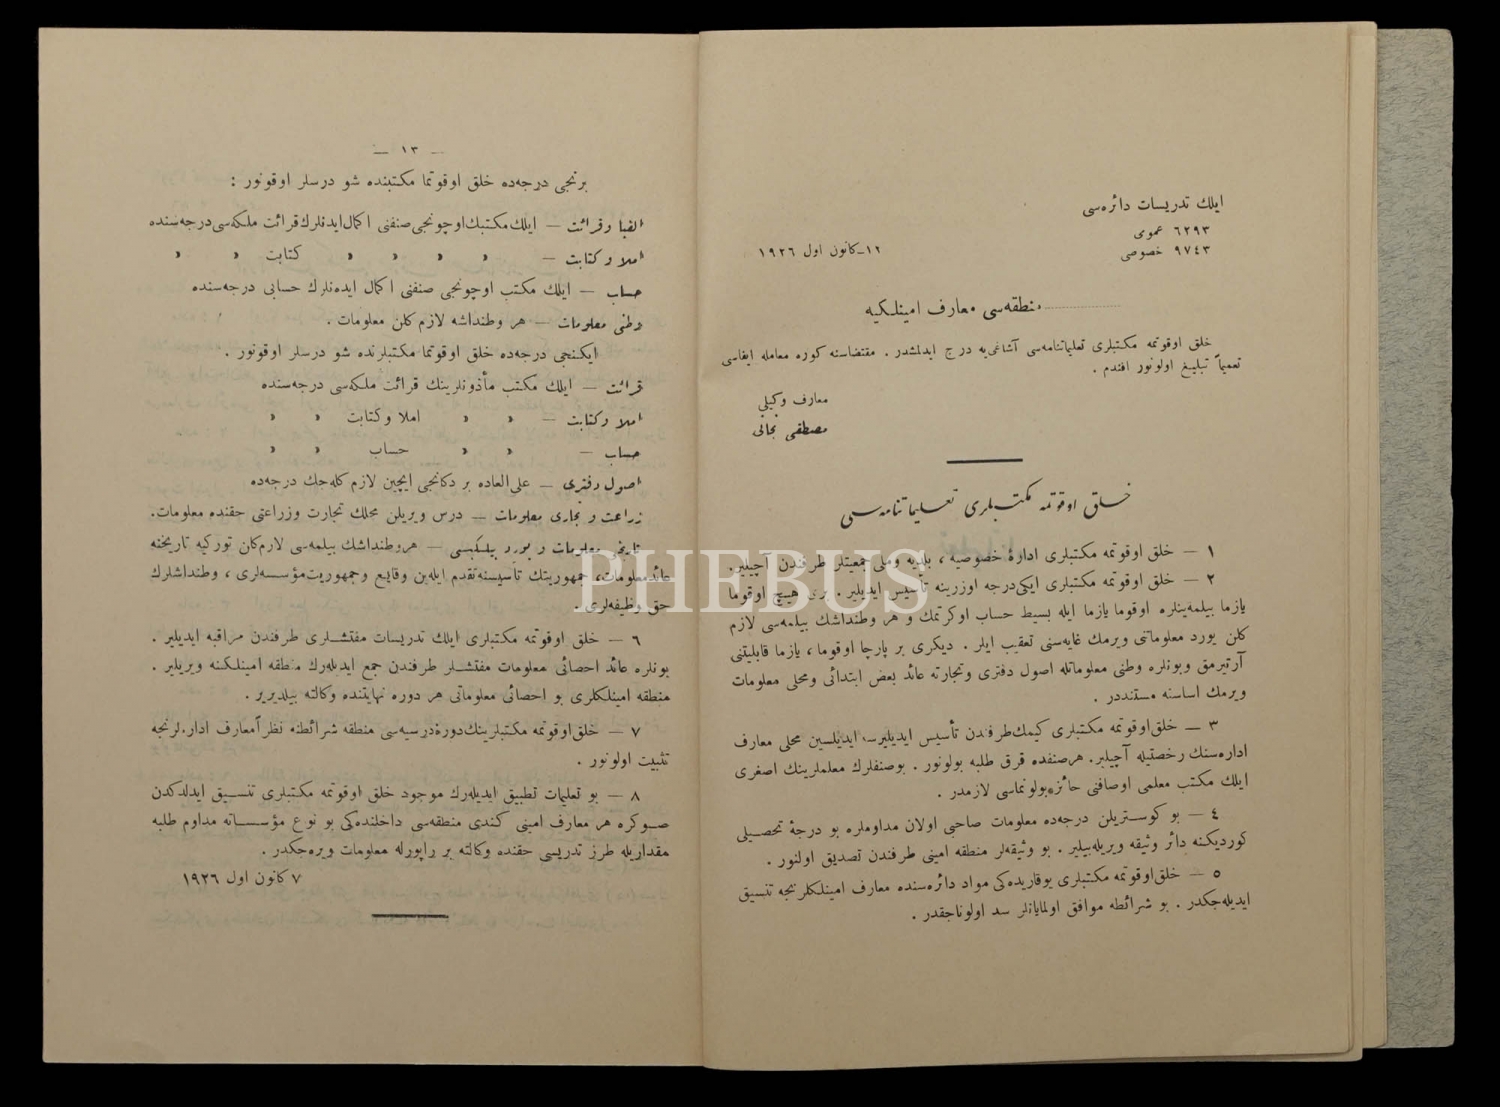 ایلك تدریسات دائره‌سی
٦٢٩٣ عمومی
٩٧٤٣ خصوصی
١٢-كانون اول ١٩٢٦
منطقه‌سی معارف امینلكیه
خلق اوقوتمه مكتبلری تعلیماتنامه‌سی آشاغی‌یه درج ایدلمشدر . مقتضاسنه كوره معامله ایفاسی
تعمیماً تبلیغ اولونور افندم .
معارف وكیلی
مصطفی نجاتی
خلق اوقوتمه مكتبلری تعلیماتنامه‌سی
١ — خلق اوقوتمه مكتبلری ادارهٔ خصوصیه ، بلدیه وملی جمعیتلر طرفندن آچیلیر.
٢ — خلق اوقوتمه مكتبلری ایكی‌درجه اوزرینه تأسیس ایدیلیر . بری هیچ اوقوما
یازما بیلمه‌ینلره اوقوما یازما ایله بسیط حساب اوكرتمك و هر وطنداشك بیلمه‌سی لازم
كلن یورد معلوماتنی ویرمك غایه‌سنی تعقیب ایلر . دیكری بر پارچا اوقوما ، یازما قابلیتنی
آرتیرمق وبونلره وطنی معلوماتله اصول دفتری وتجارته عائد بعض ابتدائی ومحلی معلومات
ویرمك اساسنه مستنددر .
٣ — خلق‌اوقوتمه مكتبلری كیمك‌طرفندن تأسیس ایدیلیرسه ایدیلسین محلی معارف
اداره‌سنك رخصتیله آچیلیر. هرصنفده قرق طلبه بولونور . بوصنفلرك معلملرینك اصغری
ایلك مكتب معلمی اوصافنی حائزبولونماسی لازمدر .
٤ — بو كوستریلن درجه‌ده معلومات صاحبی اولان مداوملره بو درجهٔ تحصیلی
كوردیكنه دائر وثیقه ویریله‌بیلیر . بو وثیقه‌لر منطقه امینی طرفندن تصدیق اولنور .
٥ — خلق‌اوقوتمه مكتبلری یوقاریده‌كی مواد دائره‌سنده معارف امینلكلرنجه تنسیق
ایدیله‌جكدر . بو شرائطه موافق اولمایانلر سد اولوناجقدر .
— ١٣ —
برنجی درجه‌ده خلق اوقوتما مكتبنده شو درسلر اوقونور :
الفبا وقرائت — ایلك مكتبك‌اوچونجی‌صنفنی اكمال‌ایدنلرك‌قرائت ملكه‌سی‌درجه‌سنده
املا وكتابت — » » » » كتابت » »
حساب — ایلك مكتب اوچونجی صنفنی اكمال ایده‌نلرك حسابی درجه‌سنده
وطنی معلومات — هر وطنداشه لازم كلن معلومات .
ایكنجی درجه‌ده خلق اوقوتما مكتبلرنده شو درسلر اوقونور .
قرائت — ایلك مكتب مأذونلرینك قرائت ملكه‌سی درجه‌سنده
املا وكتابت — » » املا وكتابت » »
حساب — » » حساب » »
اصول دفتری — علی‌العاده بر دكانجی ایچین لازم كله‌جك درجه‌ده
زراعت و تجاری معلومات — درس ویریلن محلك تجارت وزراعتی حقنده معلومات.
تاریخی معلومات و یورد بیلكیسی — هروطنداشك بیلمه‌سی لازم‌كلن توركیه تاریخنه
عائدمعلومات، جمهوریتك تأسیسنه‌تقدم ایله‌ین وقایع وجمهوریت‌مؤسسه‌لری ، وطنداشلرك
حق وظیفه‌لری .
٦ — خلق اوقوتمه مكتبلری ایلك تدریسات مفتشلری طرفندن مراقبه ایدیلیر .
بونلره عائد احصائی معلومات مفتشلر طرفندن جمع ایدیله‌رك منطقه امینلكنه ویریلیر .
منطقه امینلكلری بو احصائی معلوماتی هر دوره نهایتنده وكالته بیلدیریر .
٧ — خلق‌اوقوتمه مكتبلرینك‌دورهٔ‌درسیه‌سی منطقه شرائطنه نظراً‌معارف اداره‌لرنجه
تثبیت اولونور .
٨ — بو تعلیمات تطبیق ایدیله‌رك موجود خلق اوقوتمه مكتبلری تنسیق ایدلدكدن
صوكره هر معارف امینی كندی منطقه‌سی داخلنده‌كی بو نوع مؤسساته مداوم طلبه
مقداریله طرز تدریسی حقنده وكالته بر راپورله معلومات ویره‌جكدر .
٧ كانون اول ١٩٢٦
PHEBUS